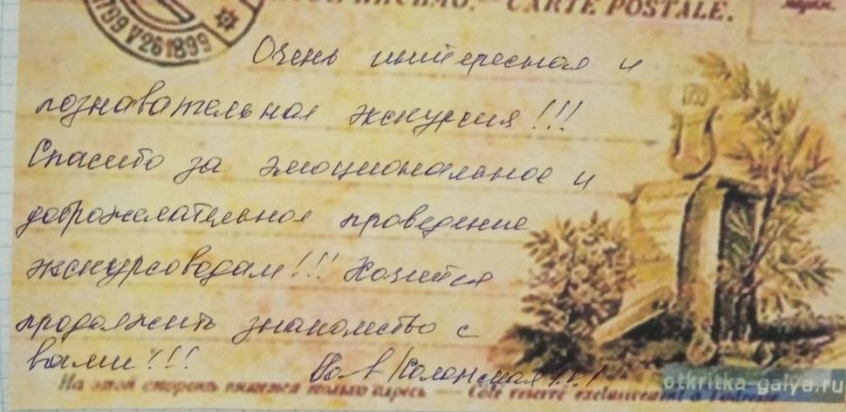 ПИСЬМО. — CARTE POSTALE.
1799 V 26 1899
Очень интересная и
познавательная экскурсия!!!
Спасибо за эмоциональное и
доброжелательное проведение
экскурсоводам!!! Хочется
продолжить знакомство с
вами!!!
На этой сторонѣ пишется только адресъ — Côté réservé exclusivement à l'adresse
otkritka-galya.ru